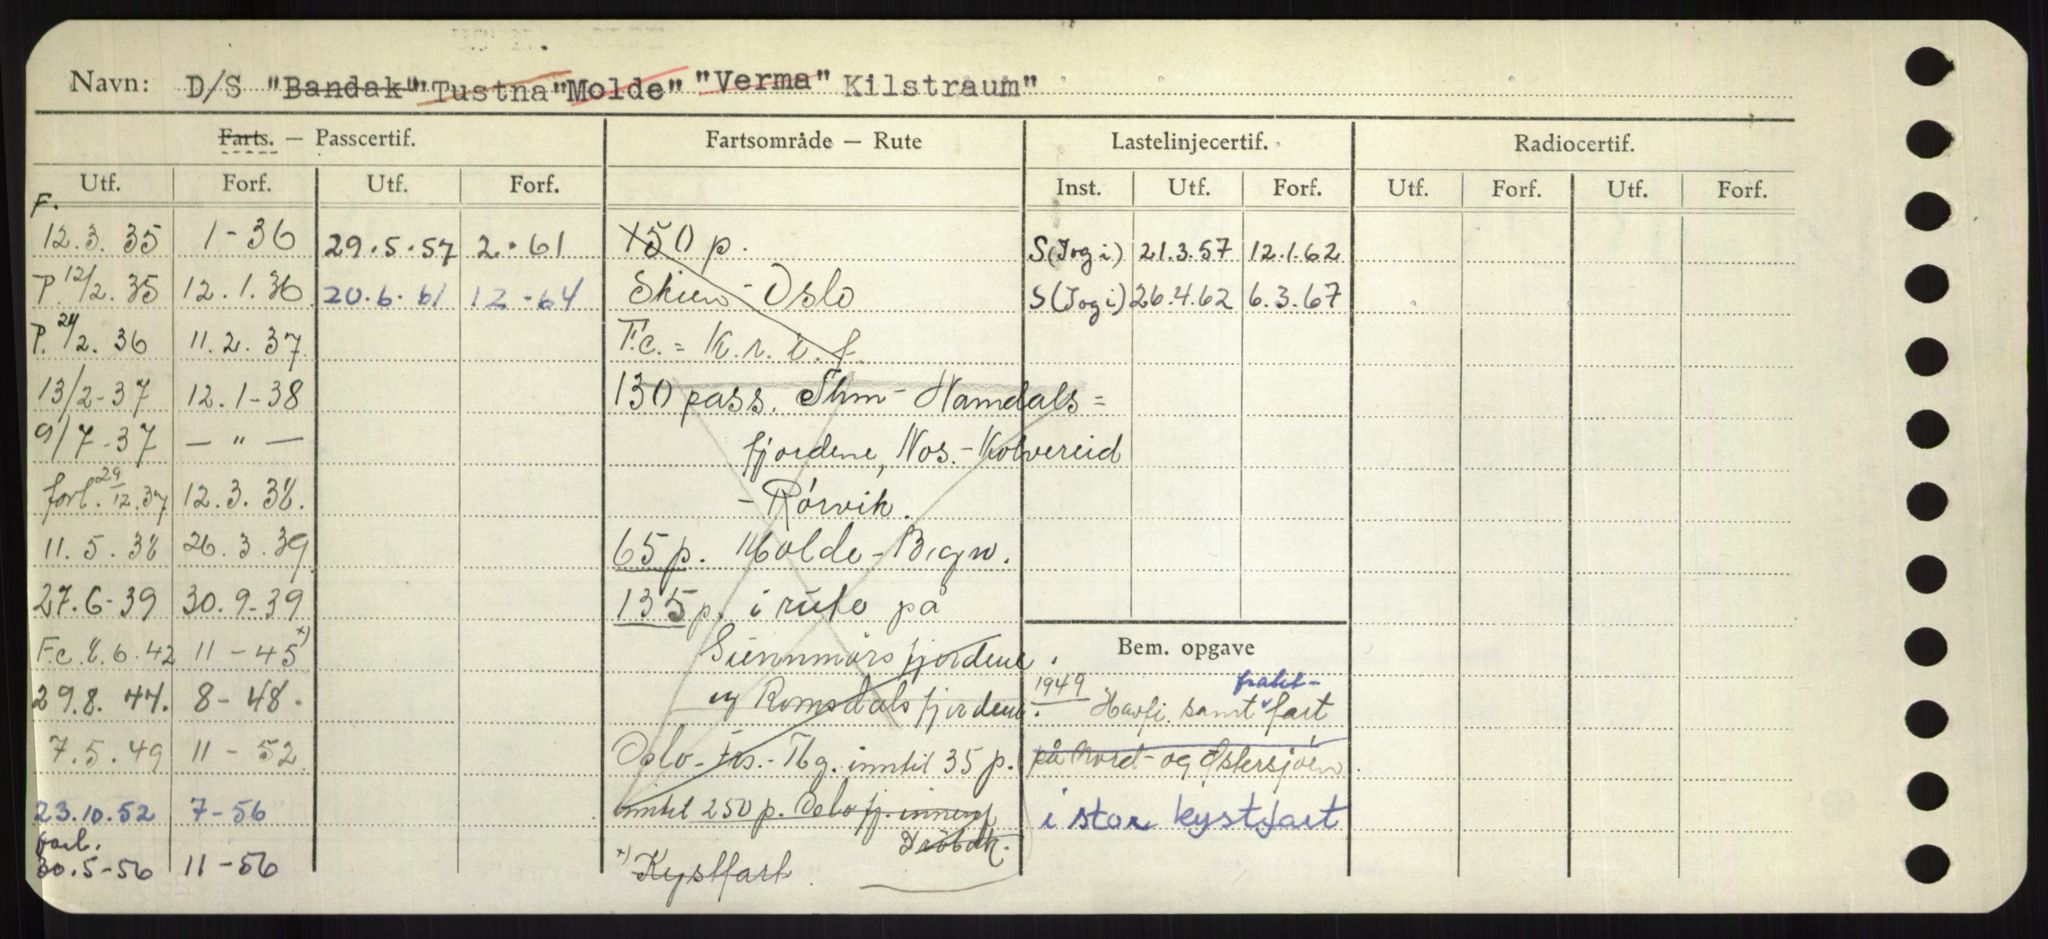 Navn: D/S "Bandak" "Tustna" "Molde" "Verma" Kilstraum"
Farts. — Passcertif. Fartsområde — Rute Lastelinjecertif. Radiocertif.
Utf. Forf. Utf. Forf. Inst. Utf. Forf. Utf. Forf. Utf. Forf.
F.
12.3.35 1-36 29.5.57 2.61 150 p. S(Jogi) 21.3.57 12.1.62
P. 12/2.35 12.1.36 20.6.61 12-64 Skien - Oslo S(Jogi) 26.4.62 6.3.67
P. 24/2.36 11.2.37 F.c. =
13/2-37 12.1-38 130 pass. Thm - Namdals=
9/7-37 — " — fjordene, Nos.-Kolvereid
forl. 29/12.37 12.3.38. - Rørvik.
11.5.38 26.3.39 65 p. Molde -
27.6-39 30.9-39 135 p. i rute på
F.c. 8.6.42 11-45 x) Sunnmørs fjordene. Bem. opgave
29.8.44. 8-48. og Romsdals fjordene. 1949 Havfi. samt frakt- fart
7.5.49 11-52 Oslo - Frs.-Tbg. inntil 35 p. på Nord- og Østersjøen
23.10.52 7-56 inntil 250 p. Oslo fj. innenf i stor kystfart
forl. Drøbak.
30.5-56 11-56 x) Kystfart.